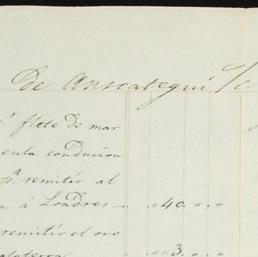 De Anscategui S/c
flete de mar
enta conducion
pª remitir al
a á Londres - „ 40 „ „
remitir el oro
„ 3 „ „